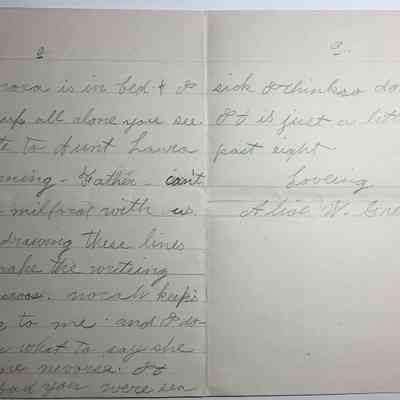 2
is in bed & I
up all alone you see
to Aunt Laura
Father can't
milford with us
drawing these lines
make the writeing
norah keeps
to me and I do
what to say she
nervorse. It
bad you were sea
sick I think so do
It is just a
past eight
Loveing
Alice W.